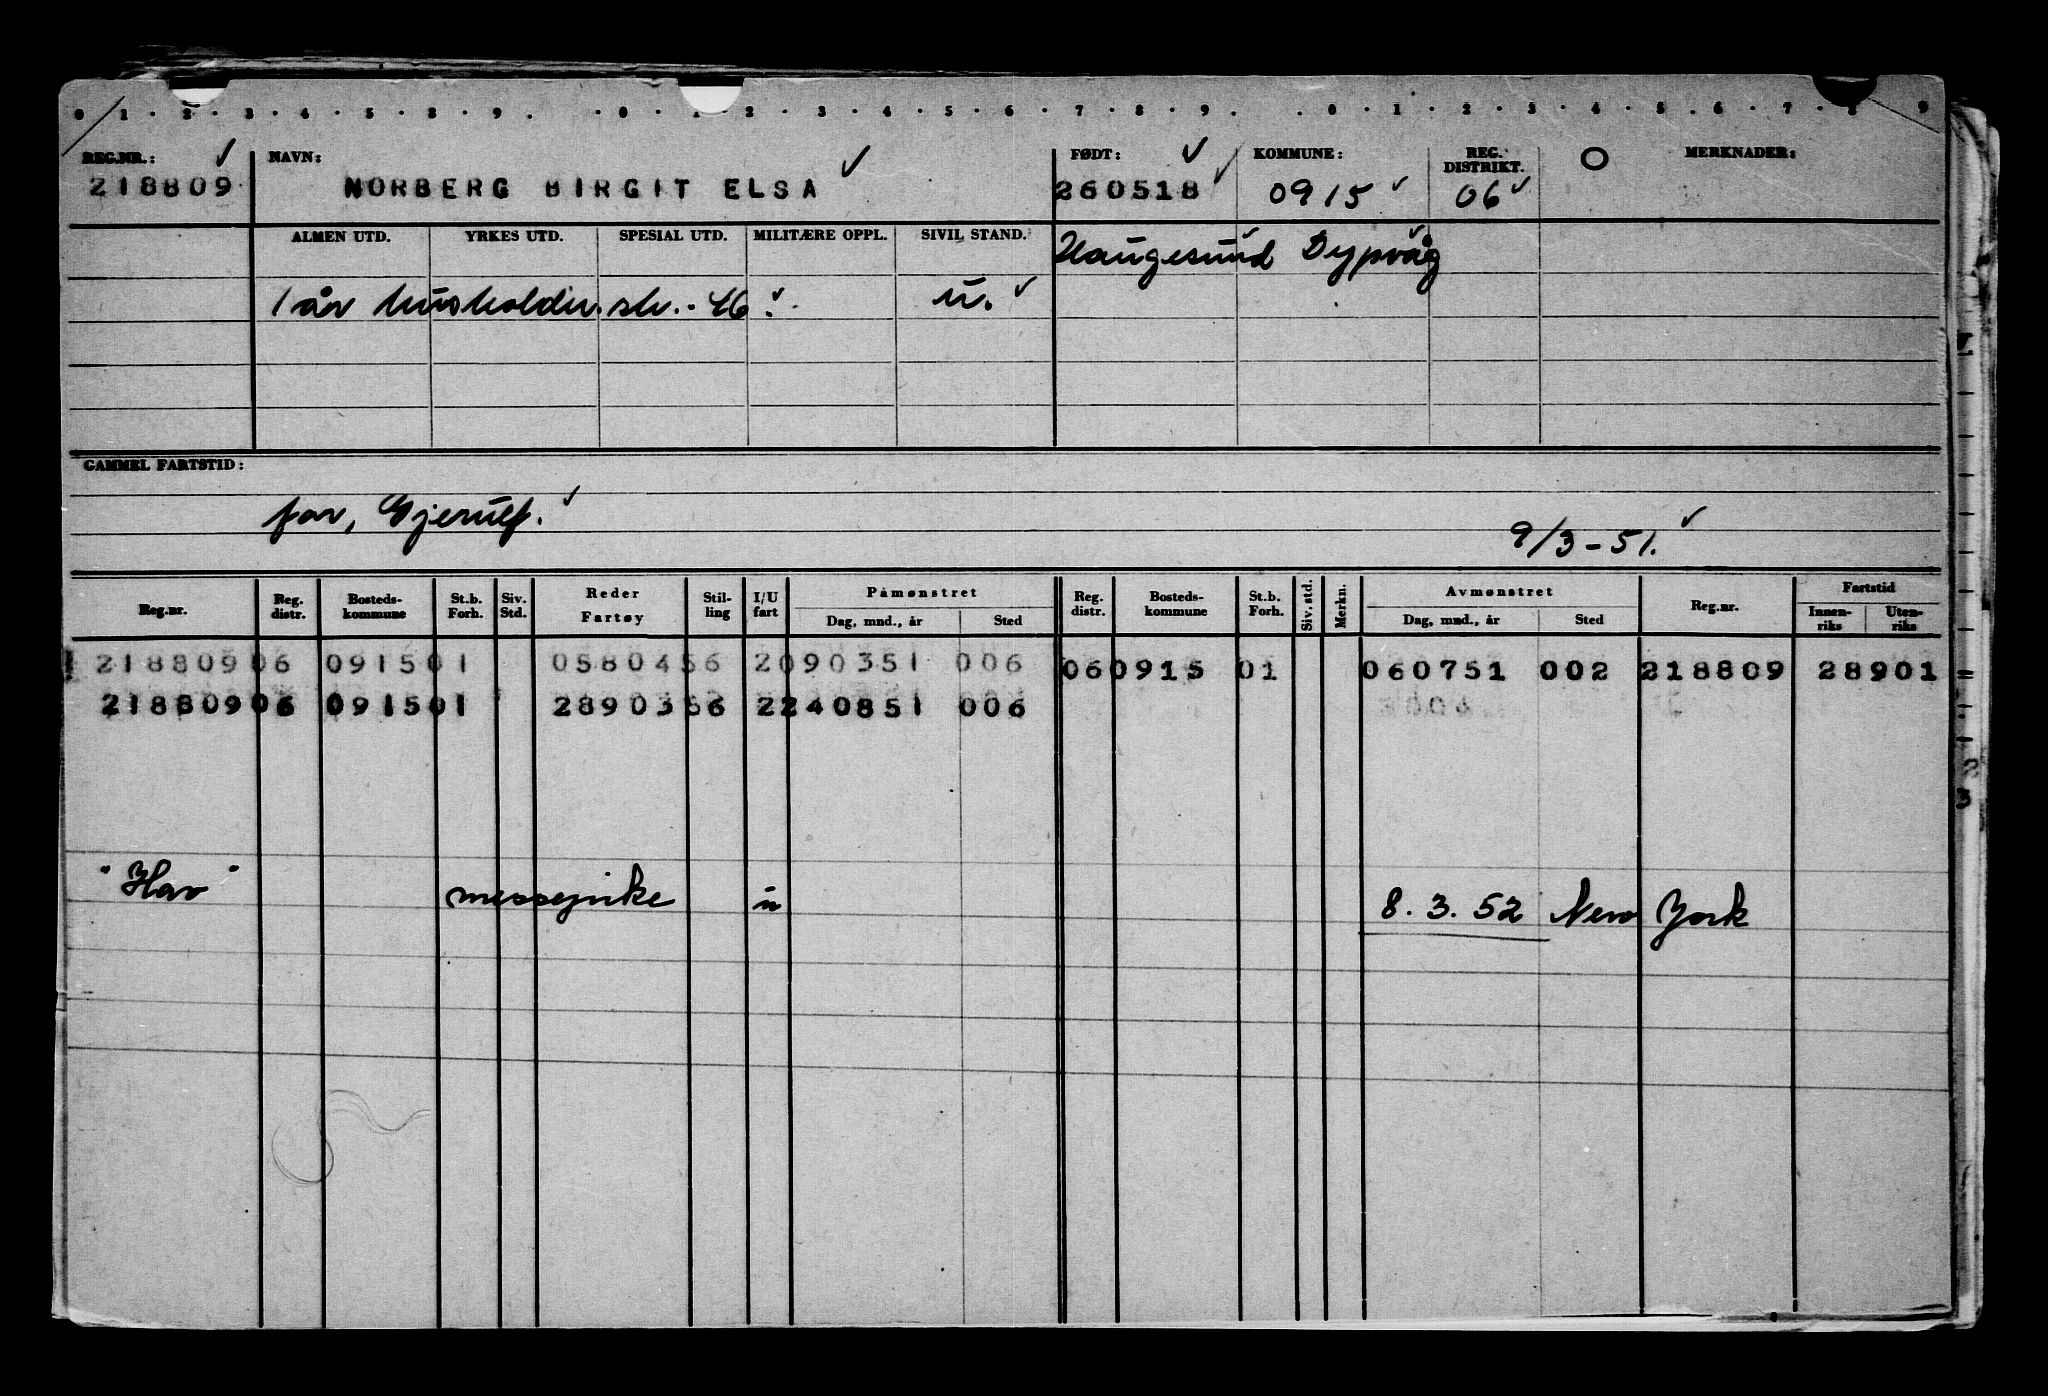 0 1 · 2 · 3 · 4 · 5 · 8 · 9 . · 0 · 1 · 2 · 3 · 4 · 5 · 6 · 7 · 8 · 9 . · 0 · 1 · 2 · 3 · 4 · 5 . 6 · 7 · 8 · 9
REG.NR.: NAVN: FØDT: KOMMUNE: REG. DISTRIKT. O MERKNADER:
218809 NORBERG BIRGIT ELSA 260518 0915 06
ALMEN UTD. YRKES UTD. SPESIAL UTD. MILITÆRE OPPL. SIVIL STAND. Haugesund Dypvåg
1 år husholdn. sk. - 46. u.
GAMMEL FARTSTID:
far, Gjerulf.
9/3-51.
Reg.nr. Reg. distr. Bosteds-kommune St.b. Forh. Siv. Std. Reder Fartøy Stil-ling I/U fart Påmønstret Dag, mnd., år Sted Reg. distr. Bosteds-kommune St.b. Forh. Siv. std. Merkn. Avmønstret Dag, mnd., år Sted Reg.nr. Fartstid Innen-riks Uten-riks
218809 06 0915 01 05804 56 2 090351 006 06 0915 01 060751 002 218809 28901
218809 06 0915 01 28903 56 2 240851 006
"Hav" messepike u 8.3.52 New York
2
3